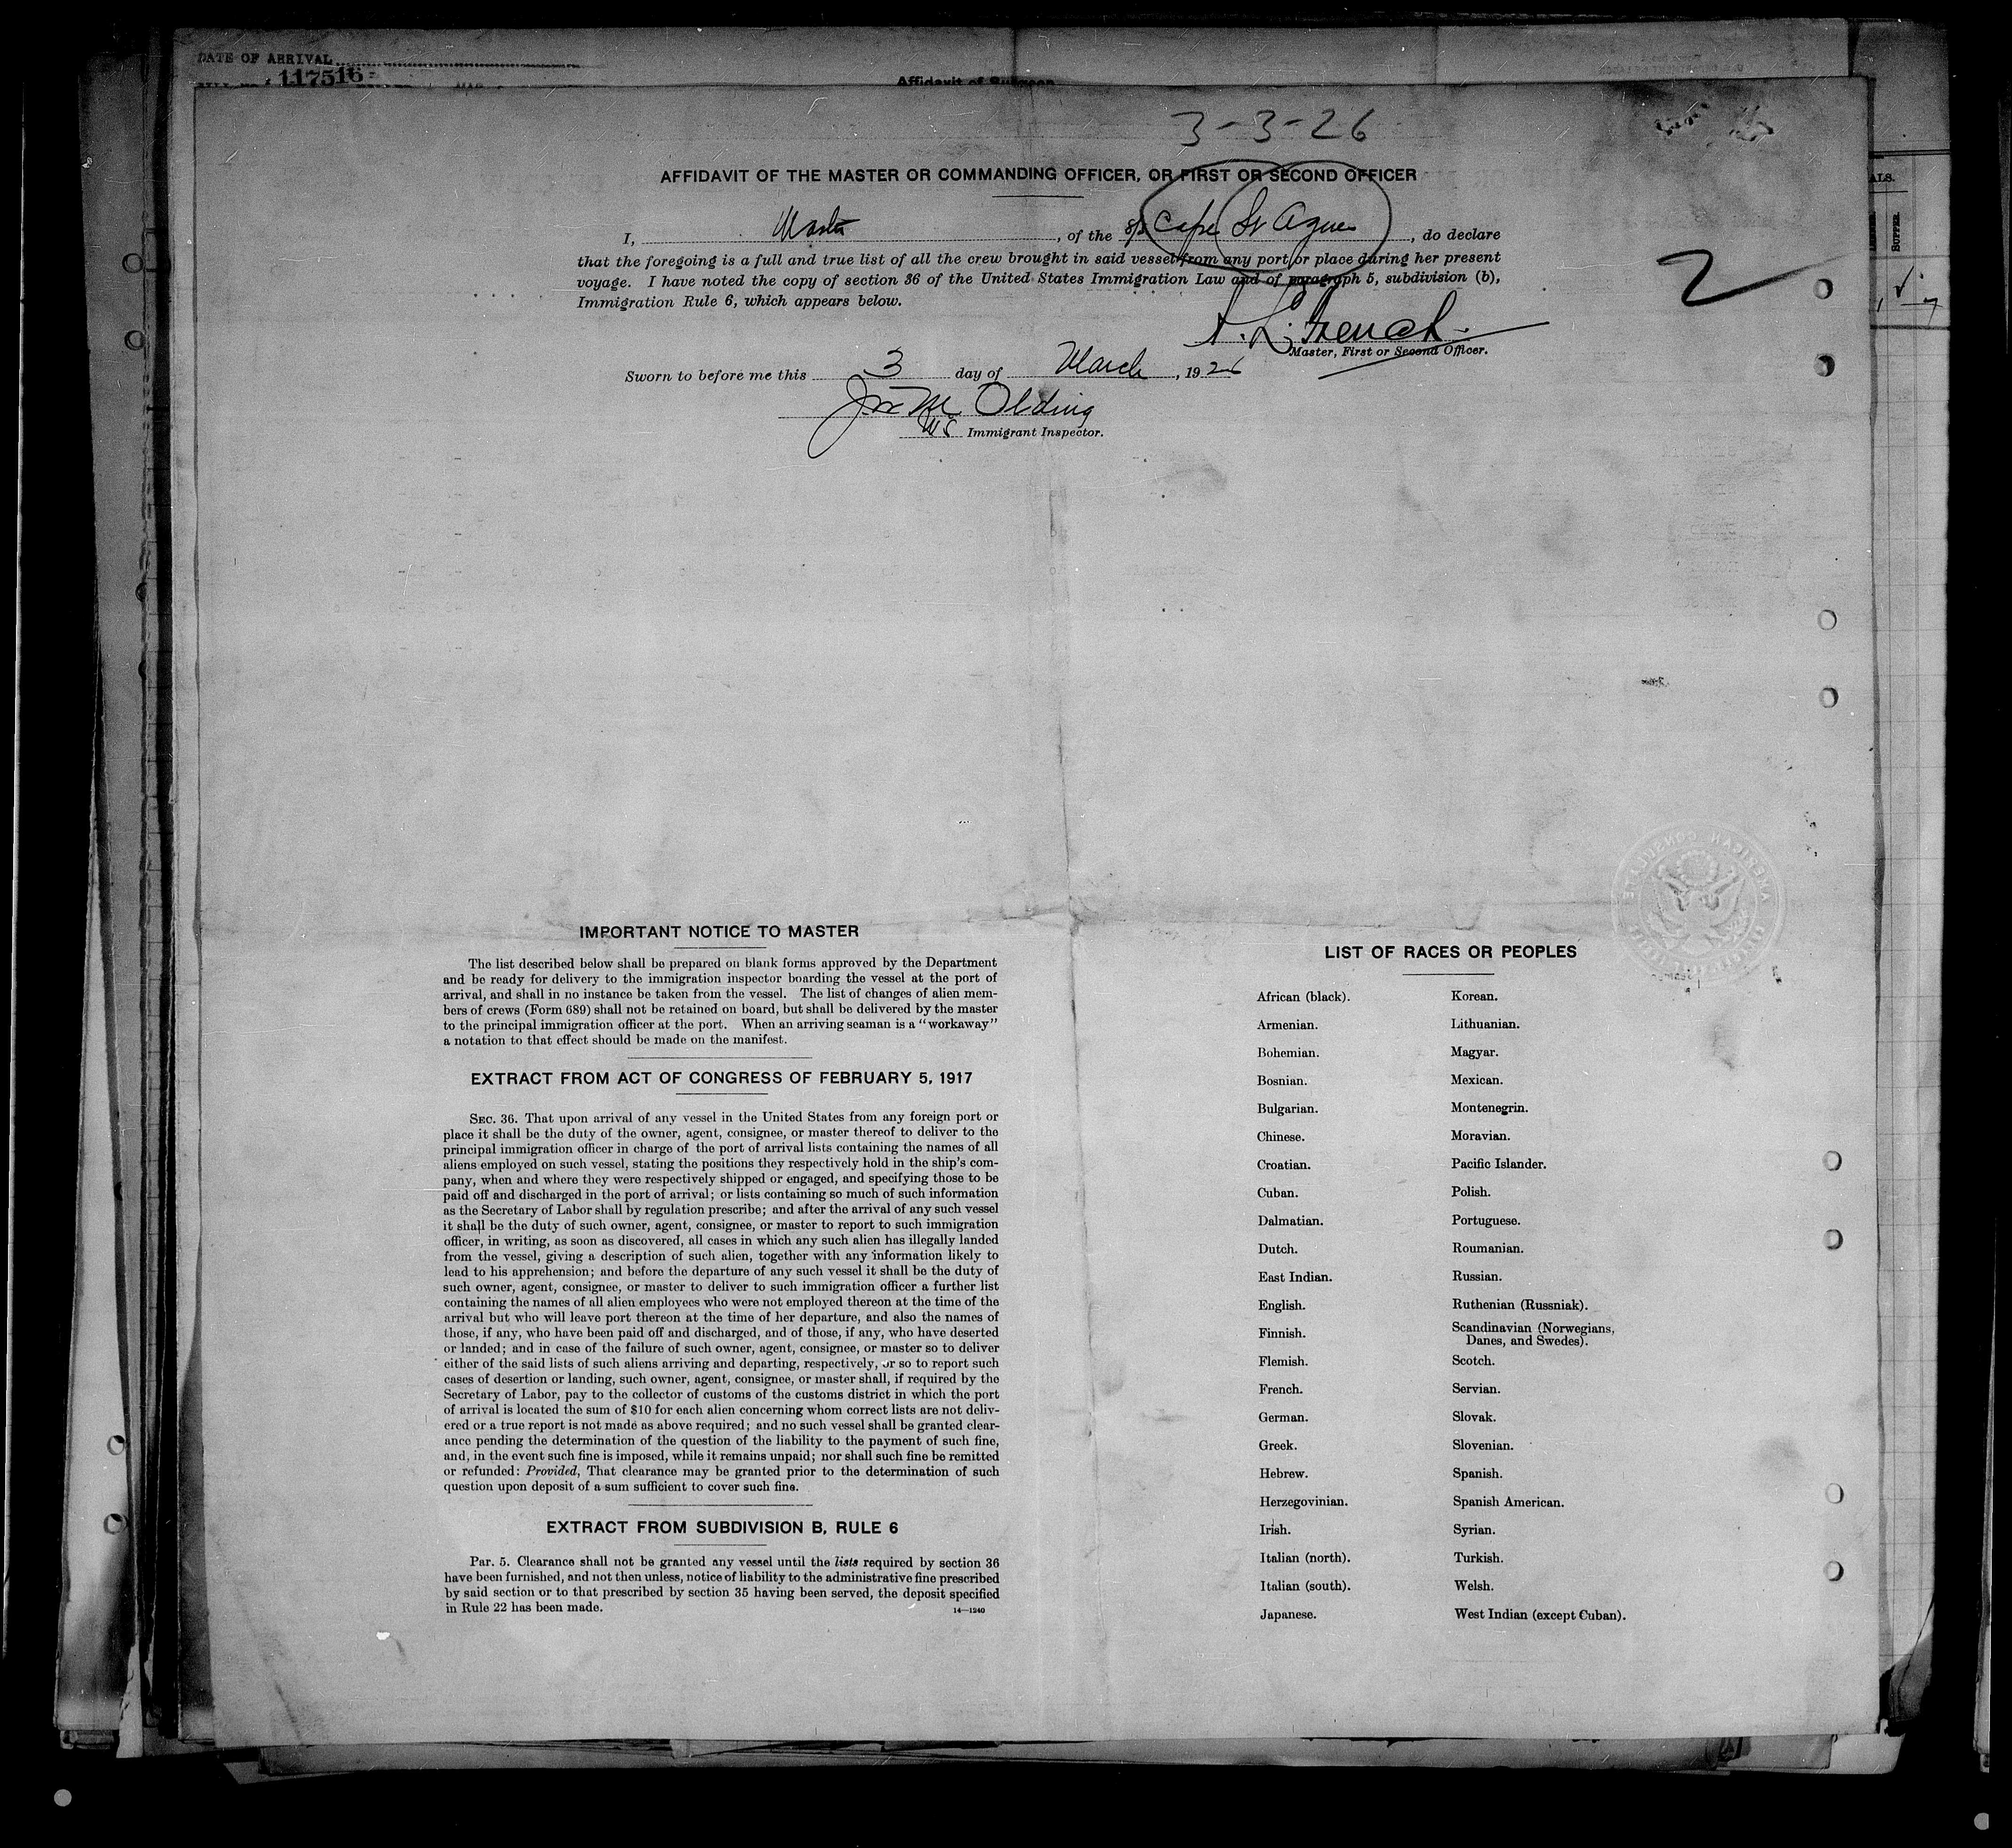 DATE OF ARRIVAL
117516
Affidavit of Surgeon
3-3-26
AFFIDAVIT OF THE MASTER OR COMMANDING OFFICER, OR FIRST OR SECOND OFFICER
I, Master, of the S/S Cape St Agnes, do declare
that the foregoing is a full and true list of all the crew brought in said vessel from any port or place during her present
voyage. I have noted the copy of section 36 of the United States Immigration Law and of paragraph 5, subdivision (b),
Immigration Rule 6, which appears below.
2
L. French
Master, First or Second Officer.
Sworn to before me this 3 day of March, 1926
Jno M Olding
US Immigrant Inspector.
ALS.
BUFFER.
AMERICAN CONSULATE
IMPORTANT NOTICE TO MASTER
The list described below shall be prepared on blank forms approved by the Department
and be ready for delivery to the immigration inspector boarding the vessel at the port of
arrival, and shall in no instance be taken from the vessel. The list of changes of alien mem-
bers of crews (Form 689) shall not be retained on board, but shall be delivered by the master
to the principal immigration officer at the port. When an arriving seaman is a "workaway"
a notation to that effect should be made on the manifest.
EXTRACT FROM ACT OF CONGRESS OF FEBRUARY 5, 1917
SEC. 36. That upon arrival of any vessel in the United States from any foreign port or
place it shall be the duty of the owner, agent, consignee, or master thereof to deliver to the
principal immigration officer in charge of the port of arrival lists containing the names of all
aliens employed on such vessel, stating the positions they respectively hold in the ship's com-
pany, when and where they were respectively shipped or engaged, and specifying those to be
paid off and discharged in the port of arrival; or lists containing so much of such information
as the Secretary of Labor shall by regulation prescribe; and after the arrival of any such vessel
it shall be the duty of such owner, agent, consignee, or master to report to such immigration
officer, in writing, as soon as discovered, all cases in which any such alien has illegally landed
from the vessel, giving a description of such alien, together with any information likely to
lead to his apprehension; and before the departure of any such vessel it shall be the duty of
such owner, agent, consignee, or master to deliver to such immigration officer a further list
containing the names of all alien employees who were not employed thereon at the time of the
arrival but who will leave port thereon at the time of her departure, and also the names of
those, if any, who have been paid off and discharged, and of those, if any, who have deserted
or landed; and in case of the failure of such owner, agent, consignee, or master so to deliver
either of the said lists of such aliens arriving and departing, respectively, or so to report such
cases of desertion or landing, such owner, agent, consignee, or master shall, if required by the
Secretary of Labor, pay to the collector of customs of the customs district in which the port
of arrival is located the sum of $10 for each alien concerning whom correct lists are not deliv-
ered or a true report is not made as above required; and no such vessel shall be granted clear-
ance pending the determination of the question of the liability to the payment of such fine,
and, in the event such fine is imposed, while it remains unpaid; nor shall such fine be remitted
or refunded: Provided, That clearance may be granted prior to the determination of such
question upon deposit of a sum sufficient to cover such fine.
EXTRACT FROM SUBDIVISION B, RULE 6
Par. 5. Clearance shall not be granted any vessel until the lists required by section 36
have been furnished, and not then unless, notice of liability to the administrative fine prescribed
by said section or to that prescribed by section 35 having been served, the deposit specified
in Rule 22 has been made.
14—1240
LIST OF RACES OR PEOPLES
African (black). Korean.
Armenian. Lithuanian.
Bohemian. Magyar.
Bosnian. Mexican.
Bulgarian. Montenegrin.
Chinese. Moravian.
Croatian. Pacific Islander.
Cuban. Polish.
Dalmatian. Portuguese.
Dutch. Roumanian.
East Indian. Russian.
English. Ruthenian (Russniak).
Finnish. Scandinavian (Norwegians,
Danes, and Swedes).
Flemish. Scotch.
French. Servian.
German. Slovak.
Greek. Slovenian.
Hebrew. Spanish.
Herzegovinian. Spanish American.
Irish. Syrian.
Italian (north). Turkish.
Italian (south). Welsh.
Japanese. West Indian (except Cuban).